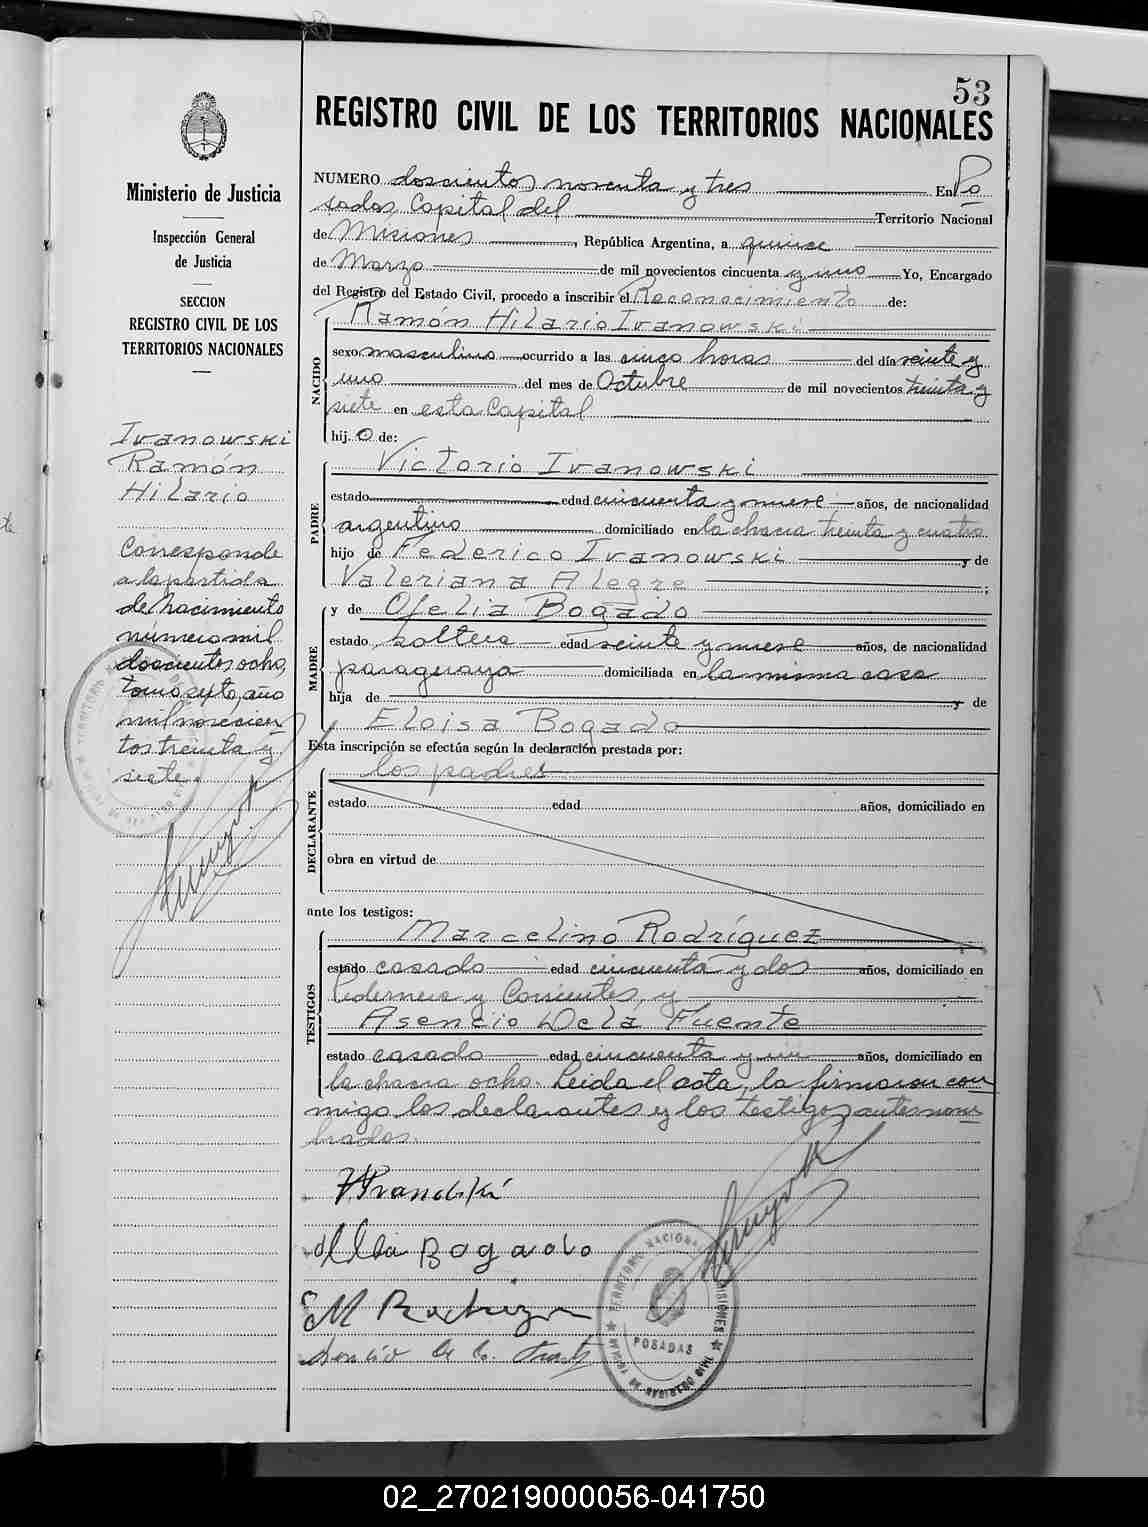 53
REGISTRO CIVIL DE LOS TERRITORIOS NACIONALES
Ministerio de Justicia
Inspección General
de Justicia
SECCION
REGISTRO CIVIL DE LOS
TERRITORIOS NACIONALES
Ivanowski
Ramón
Hilario
Corresponde
a la partida
de Nacimiento
número mil
doscientos ocho,
tomo sexto, año
mil novecien
tos treinta y
siete.
NUMERO doscientos noventa y tres En Po
sadas Capital del Territorio Nacional
de Misiones, República Argentina, a quince
de Marzo de mil novecientos cincuenta y uno Yo, Encargado
del Registro del Estado Civil, procedo a inscribir el Reconocimiento de:
Ramón Hilario Ivanowski
NACIDO
sexo masculino ocurrido a las cinco horas del día veinte y
uno del mes de Octubre de mil novecientos treinta y
siete en esta Capital
hij. o de:
Victorio Ivanowski
PADRE
estado edad cincuenta y nueve años, de nacionalidad
argentino domiciliado en la chacra treinta y cuatro
hijo de Federico Ivanowski y de
Valeriana Alegre
y de Ofelia Bogado
MADRE
estado soltera edad veinte y nueve años, de nacionalidad
paraguaya domiciliada en la misma casa
hija de y de
Eloisa Bogado
Esta inscripción se efectúa según la declaración prestada por:
los padres
DECLARANTE
estado edad años, domiciliado en
obra en virtud de
ante los testigos:
Marcelino Rodríguez
TESTIGOS
estado casado edad cincuenta y dos años, domiciliado en
Pedernera y Corrientes, y
Asencio De la Fuente
estado casado edad cincuenta y un años, domiciliado en
la chacra ocho. Leida el acta, la firmaron con
migo los declarantes y los testigos antes nom
brados.
Bogado
POSADAS
02_270219000056-041750